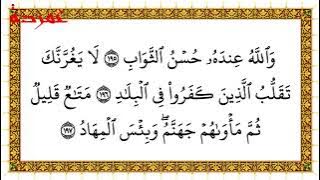 وَٱللَّهُ عِندَهُۥ حُسۡنُ ٱلثَّوَابِ ١٩٥ لَا يَغُرَّنَّكَ
تَقَلُّبُ ٱلَّذِينَ كَفَرُواْ فِي ٱلۡبِلَٰدِ ١٩٦ مَتَٰعٞ قَلِيلٞ
ثُمَّ مَأۡوَىٰهُمۡ جَهَنَّمُۖ وَبِئۡسَ ٱلۡمِهَادُ ١٩٧